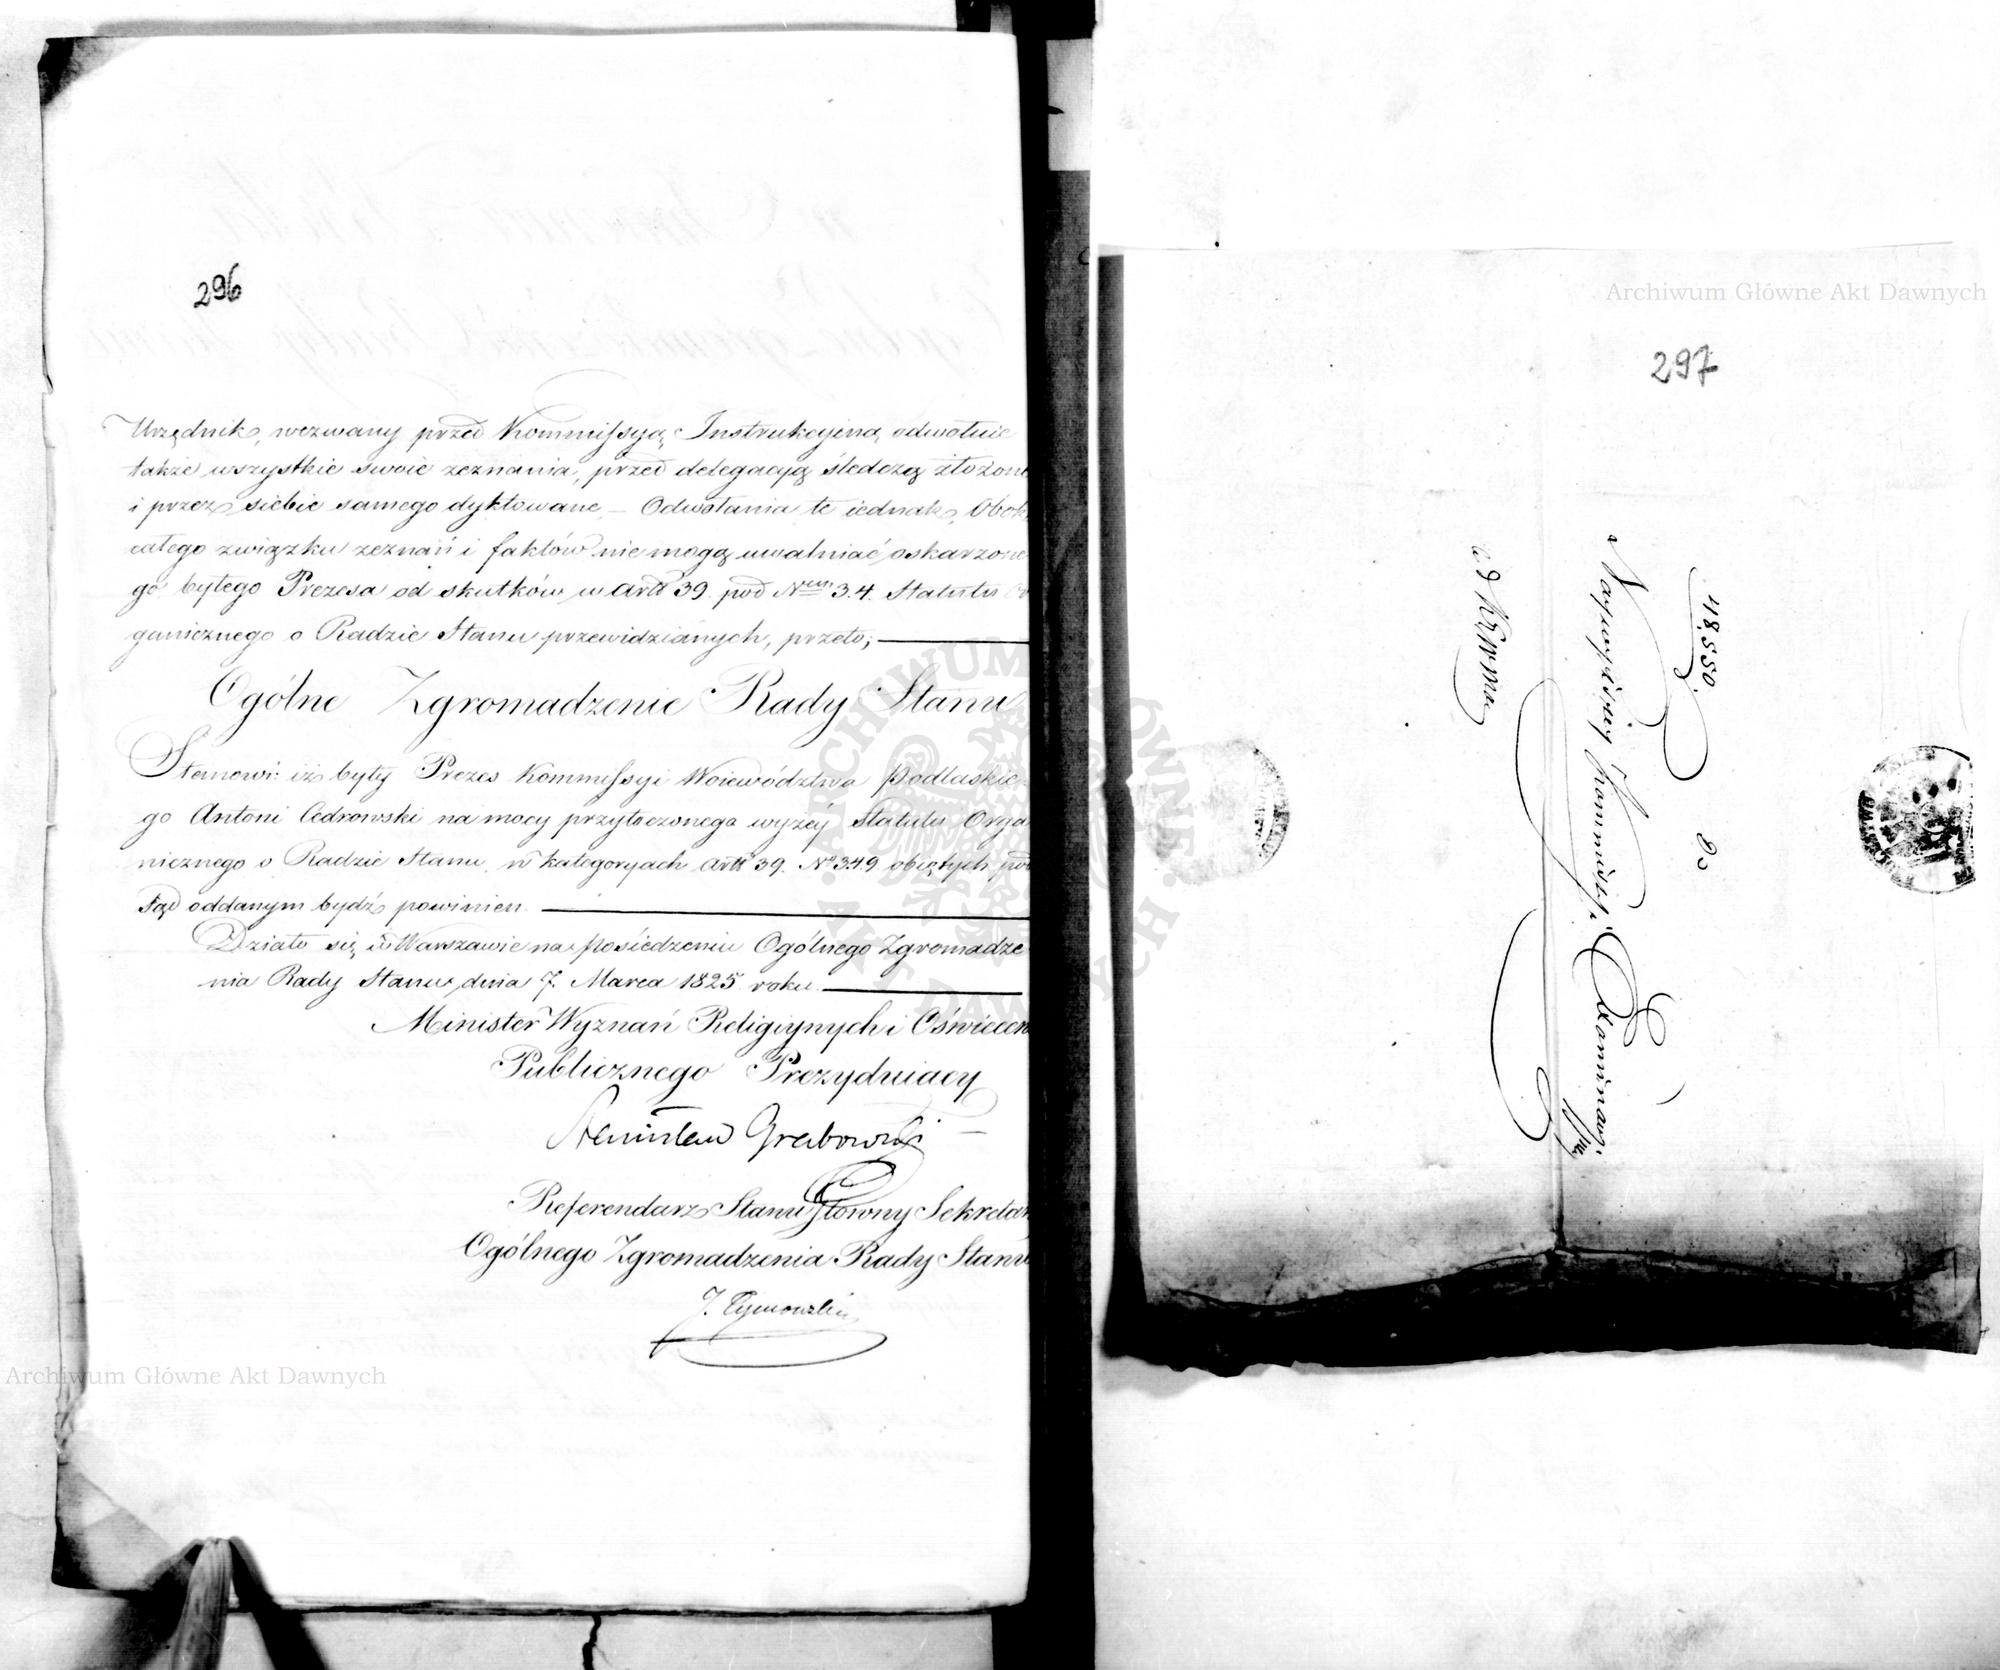 296
Urzędnik, wezwany przed Kommissyą Instrukcyiną odwołuie
także wszystkie swoie zeznania, przed delegacyą śledczą złożone
i przez siebie samego dyktowane, – Odwołania te iednak, Obok
całego związku zeznań i faktów nie mogą uwalniać oskarzone-
go byłego Prezesa od skutków w artle 39. pod Nrem 3.4. Statutu Or
ganicznego o Radzie Stanu przewidzianych, przeto;
Ogólne Zgromadzenie Rady Stanu
Stanowi: iż były Prezes Kommissyi Woiewództwa Podlaskie-
go Antoni Cedrowski na mocy przytoczonego wyżéy Statutu Orga
nicznego o Radzie Stanu, w kategoryach artłu 39. No 3.4.9 obiętych pod
Sąd oddanym bydź powinien.
Działo się w Warszawie na posiedzeniu Ogólnego Zgromadze-
nia Rady Stanu, dnia 7. Marca 1825 roku.
Minister Wyznań Religiynych i Oświecen
Publicznego Prezyduiący
Stanisław Grabowski
Referendarz Stanu Główny Sekretar
Ogólnego Zgromadzenia Rady Stanu
J. Tymowski
Archiwum Główne Akt Dawnych
ARCHIWUM GŁÓWNE
AKT DAWNYCH
Archiwum Główne Akt Dawnych
297
48,550.
Do
Naywyższéy Kommissyi Examinacy: